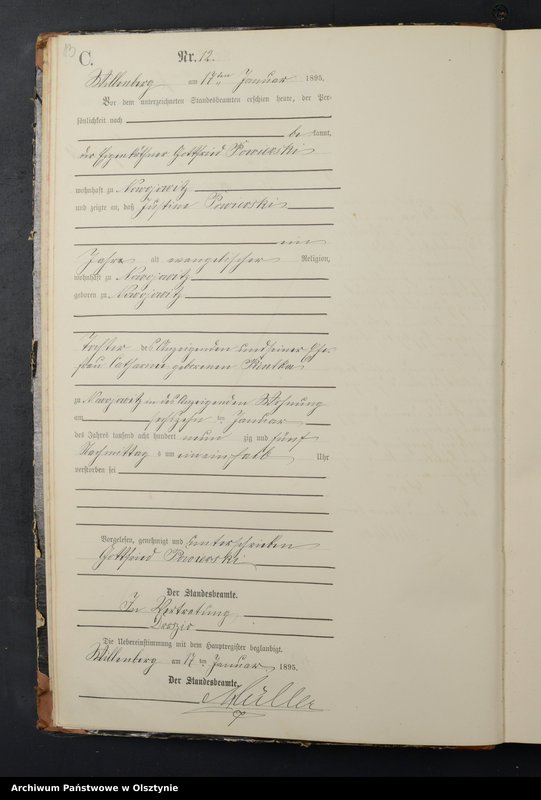 C.
Nr. 12.
Willenberg am 17ten Januar 1895.
Vor dem unterzeichneten Standesbeamten erschien heute, der Per-
sönlichkeit nach
be kannt,
der Eigenkäthner Gottfried
wohnhaft zu
und zeigte an, daß Justine
ein
Jahre alt evangelischer Religion,
wohnhaft zu
geboren zu
Tochter des Anzeigenden und seiner Ehe-
frau Catharine geborenen
zu in des Anzeigenden Wohnung
am sechszehn ten Januar
des Jahres tausend acht hundert neun zig und fünf
Nachmittag s um eineinhalb Uhr
verstorben sei
Vorgelesen, genehmigt und unterschrieben
Gottfried
Der Standesbeamte.
In Vertretung
Die Uebereinstimmung mit dem Hauptregister beglaubigt.
Willenberg am 17 ten Januar 1895.
Der Standesbeamte.
Müller
Archiwum Państwowe w Olsztynie